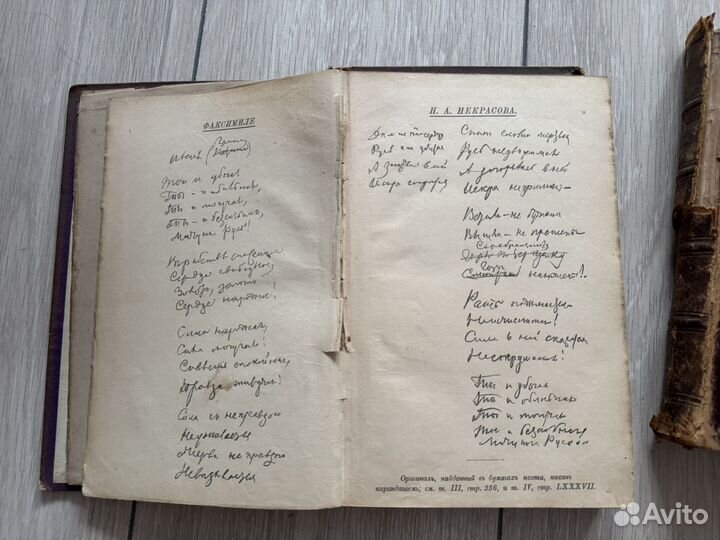 ФАКСИМИЛЕ
Пѣсня (Гриши
Ты и убогая
Ты – и обильная,
Ты и могучая,
Ты – и безсильная,
Матушка Русь!
Въ рабствѣ спасенное
Сердце свободное,
Золото, золото
Сердце народное!
Сила народная,
Сила могучая!
Совѣсть спокойная,
Правда живучая!
Сила съ неправдою
Неуживается
Жертва неправдою
Невызывается
Н. А. НЕКРАСОВА.
Русь
А
Искра
Спитъ словно мертвая
Русь недвижимая
А загорѣлась въ ней
Искра
Встали – не бужены
Вышли – не прошены
Горы наношены!
Рать подымается
Неисчислимая!
Сила въ ней скажется
Несокрушимая!
Ты и убогая
Ты и обильная
Ты и могучая
Ты и безсильная
Матушка Русь
Оригиналъ, найденный въ бумагахъ поэта, писанъ
карандашемъ; см. т. III, стр. 236, и т. IV, стр. LXXXVII.
Avito